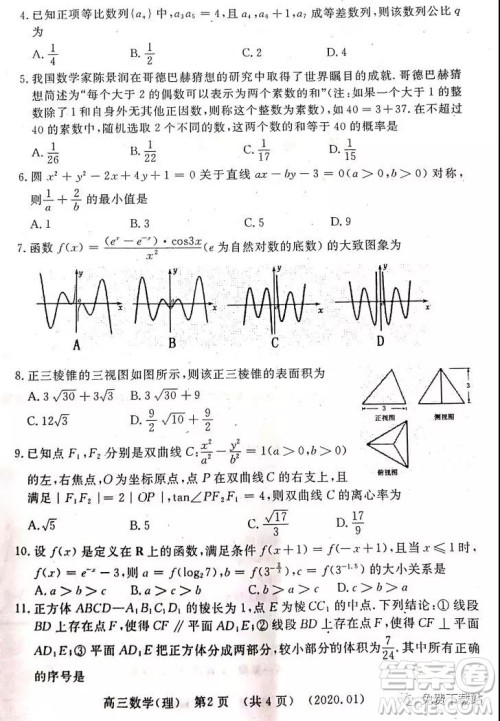 4.已知正项等比数列{aₙ}中,a₃a₅=4,且a₄,a₆+1,a₇成等差数列,则该数列公比q
为
A.1/4 B.1/2 C.2 D.4
5.我国数学家陈景润在哥德巴赫猜想的研究中取得了世界瞩目的成就.哥德巴赫猜
想简述为“每个大于2的偶数可以表示为两个素数的和(注:如果一个大于1的整
数除了1和自身外无其他正因数,则称这个整数为素数),如40=3+37.在不超过
40的素数中,随机选取2个不同的数,这两个数的和等于40的概率是
A.1/26 B.1/22 C.1/17 D.1/15
6.圆x²+y²-2x+4y+1=0关于直线ax-by-3=0(a>0,b>0)对称,
则1/a+2/b的最小值是
A.1 B.3 C.5 D.9
7.函数f(x)=(eˣ-e⁻ˣ)·cos3x/x²(e为自然对数的底数)的大致图象为
y x y x y x y x
A B C D
8.正三棱锥的三视图如图所示,则该正三棱锥的表面积为
A.3√30+3√3 B.9
C.12√3 D.9/2√10+9/2√3
3 3
正视图 侧视图
俯视图
9.已知点F₁,F₂分别是双曲线C:x²/a²-y²/b²=1(a>0,b>0)
的左,右焦点,O为坐标原点,点P在双曲线C的右支上,且
满足|F₁F₂|=2|OP|,tan∠PF₂F₁=4,则双曲线C的离心率为
A.√5 B.5 C.√17/3 D.17/9
10.设f(x)是定义在R上的函数,满足条件f(x+1)=f(-x+1),当x≥1时,
f(x)=e⁻ˣ-3,则a=f(log₂7),b=f(3
),c=f(3⁻¹·⁵)的大小关系是
A.a>b>c B.a>c>b C.b>a>c D.c>b>a
11.正方体ABCD—A₁B₁C₁D₁的棱长为1,点E为棱CC₁的中点.下列结论:①线段
BD上存在点F,使得CF∥平面AD₁E;②线段
BD上存在点F,使得
平面AD₁E;③平面AD₁E把正方体分成两部分,较小部分的体积为7/24,其中所有正确
的序号是
高三数学(理) 第2页 (共4页) (2020.01)
免费下载站